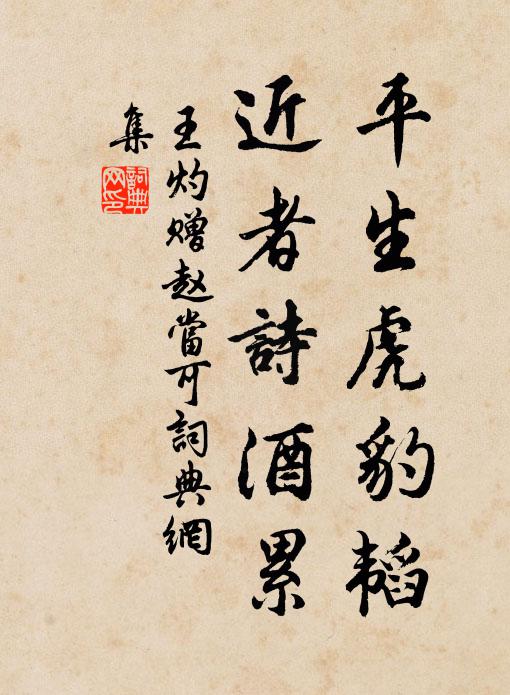 平生虎豹韬
近者詩酒累
王灼赠赵當可詞典網
集
詞典网印